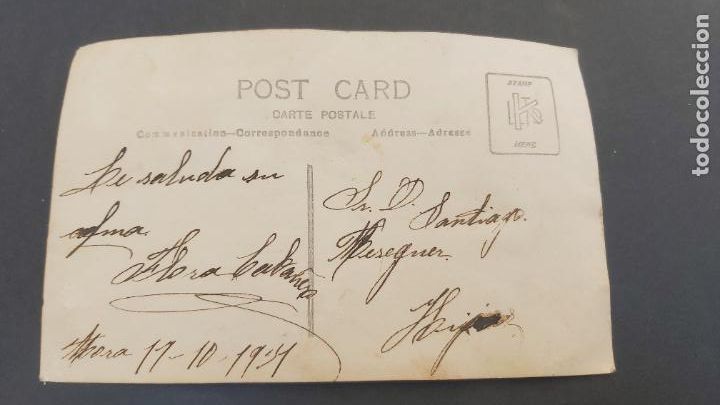 POST CARD
CARTE POSTALE
Communication—Correspondance
Address—Adresse
STAMP
HERE
Le saluda su
afma.
Flora
Mora 17-10-19
Sr. D. Santiago
Meseguer
todocoleccion